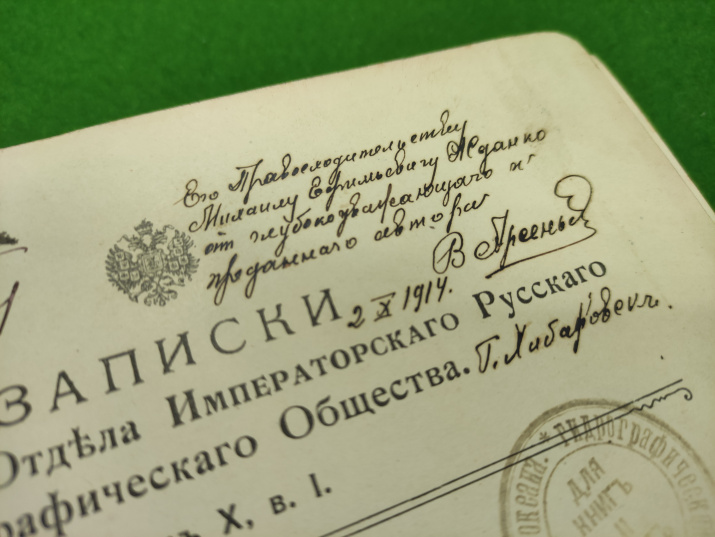 Его Превосходительству
Михаилу Ефимьевичу Жданко
от глубокоуважающаго и
преданнаго автора
В Арсеньев
2 X 1914.
г. Хабаровскъ.
ЗАПИСКИ
Отдѣла Императорскаго Русскаго
графическаго Общества.
X, в. I.
океана. * Гидрографическ
ДЛЯ
КНИГЪ
И